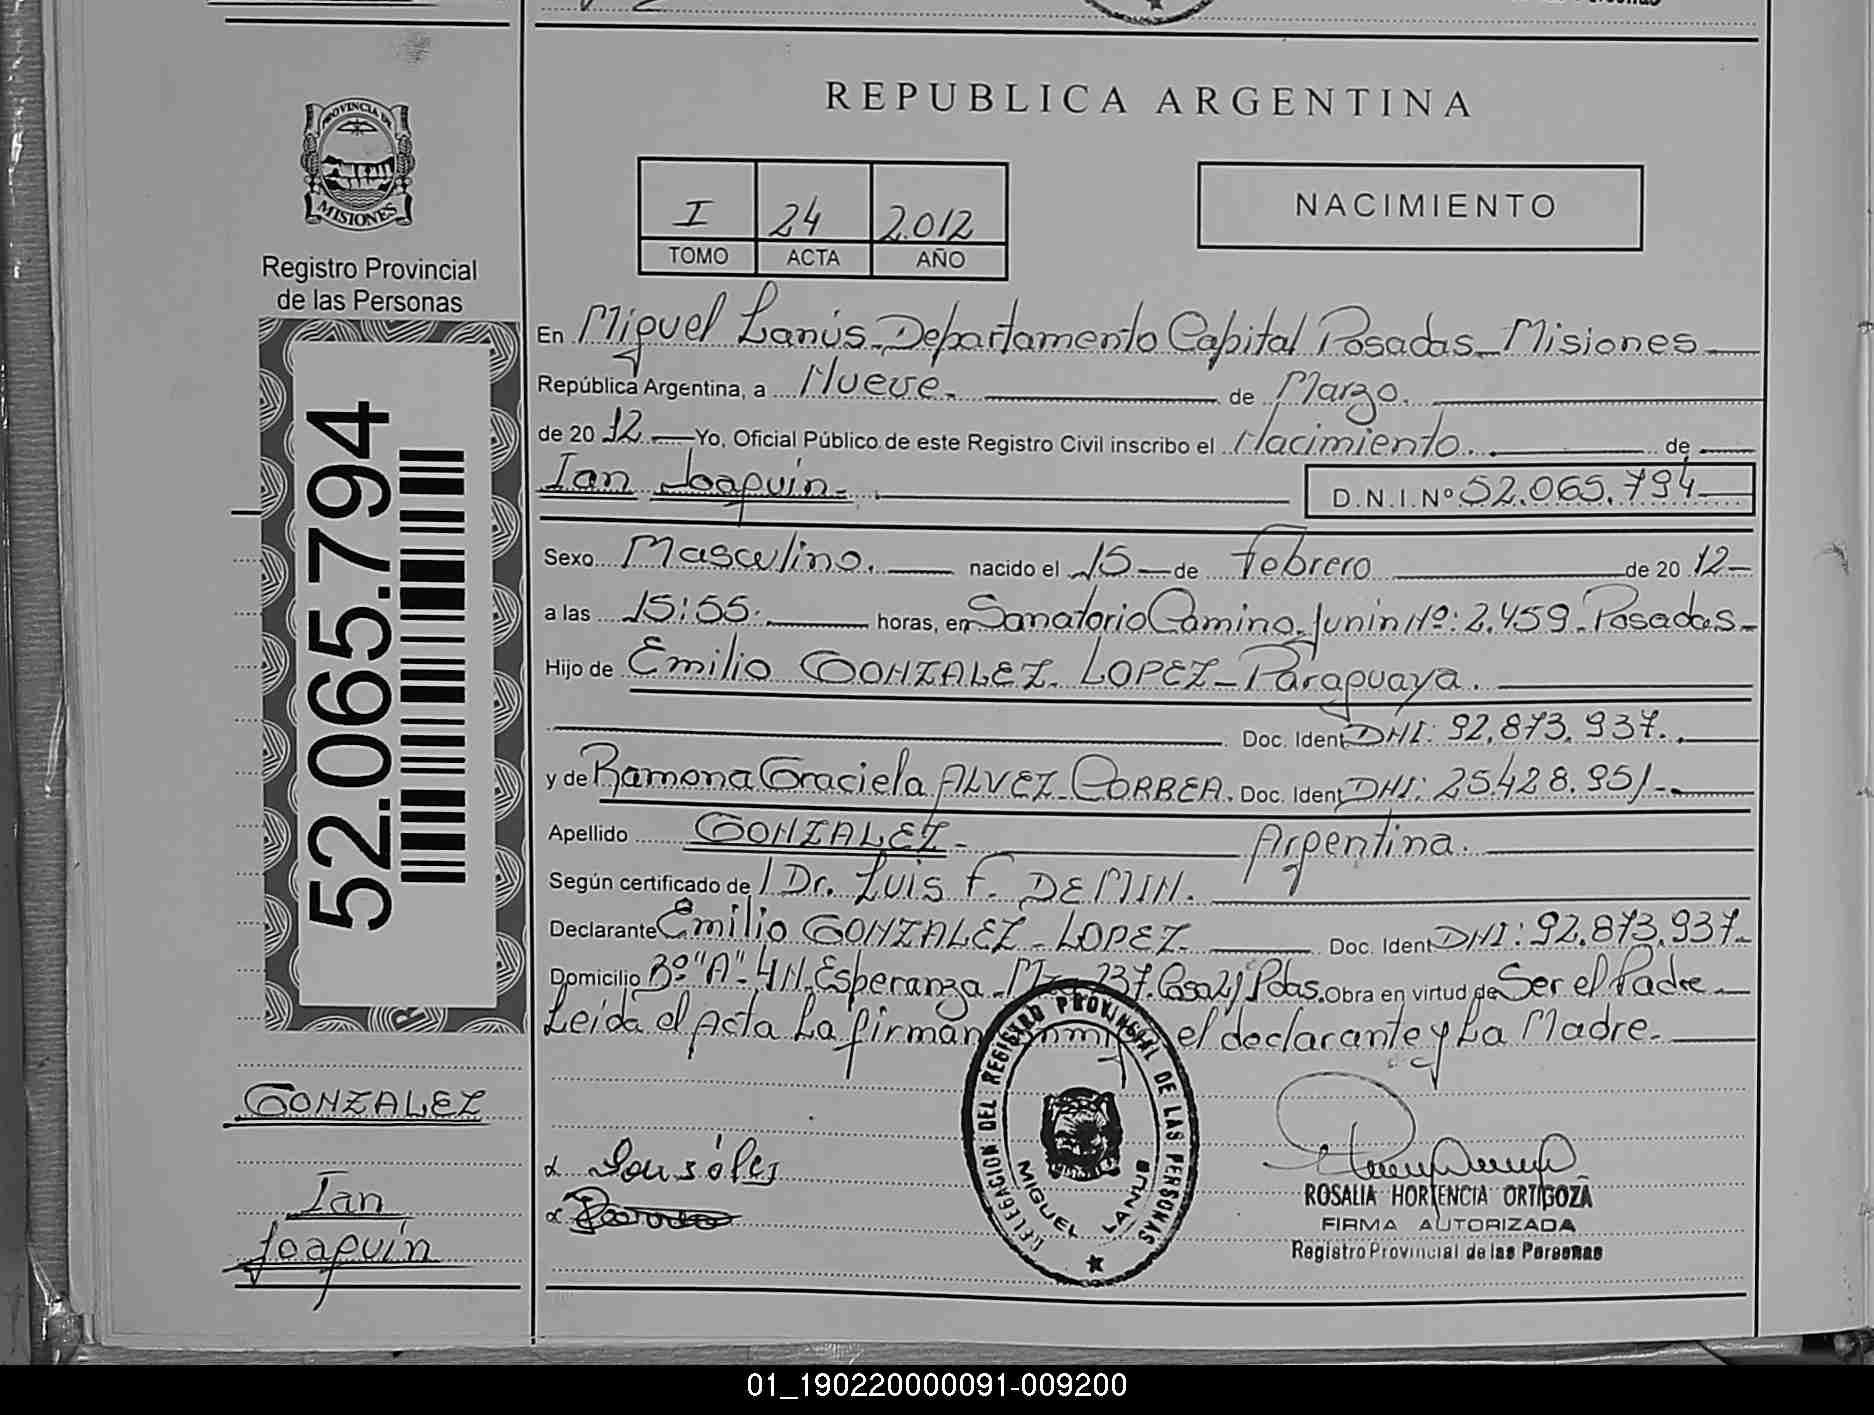 REPUBLICA ARGENTINA
PROVINCIA DE
MISIONES
Registro Provincial
de las Personas
52.065.794
I 24 2.012
TOMO ACTA AÑO
NACIMIENTO
En Miguel Lanús-Departamento Capital Posadas-Misiones
República Argentina, a Nueve. de Marzo.
de 20 12 Yo, Oficial Público de este Registro Civil inscribo el Nacimiento. de
Ian Joaquín- D.N.I.Nº 52.065.794
Sexo Masculino. nacido el 15 de febrero de 20 12-
a las 15:55. horas, en Sanatorio Camino. Junin Nº: 2.459. Posadas-
Hijo de Emilio GONZALEZ LOPEZ-Paraguaya.
Doc. Ident DNI: 92.873.937.
y de Ramona Graciela ALVEZ CORREA. Doc. Ident DNI: 25.428.951-
Apellido GONZALEZ- Argentina.
Según certificado de Dr. Luis F. DEMIN.
Declarante Emilio GONZALEZ-LOPEZ- Doc. Ident DNI: 92.873.937-
Domicilio Bº"A"-4 N. Esperanza 237. Casa Pdas. Obra en virtud de Ser el Padre
Leída el Acta La firman el declarante y La Madre.
GONZALEZ
Ian
Joaquín
DELEGACION DEL REGISTRO PROVINCIAL DE LAS PERSONAS
MIGUEL LANUS
ROSALIA HORTENCIA ORTIGOZA
FIRMA AUTORIZADA
Registro Provincial de las Personas
01_190220000091-009200